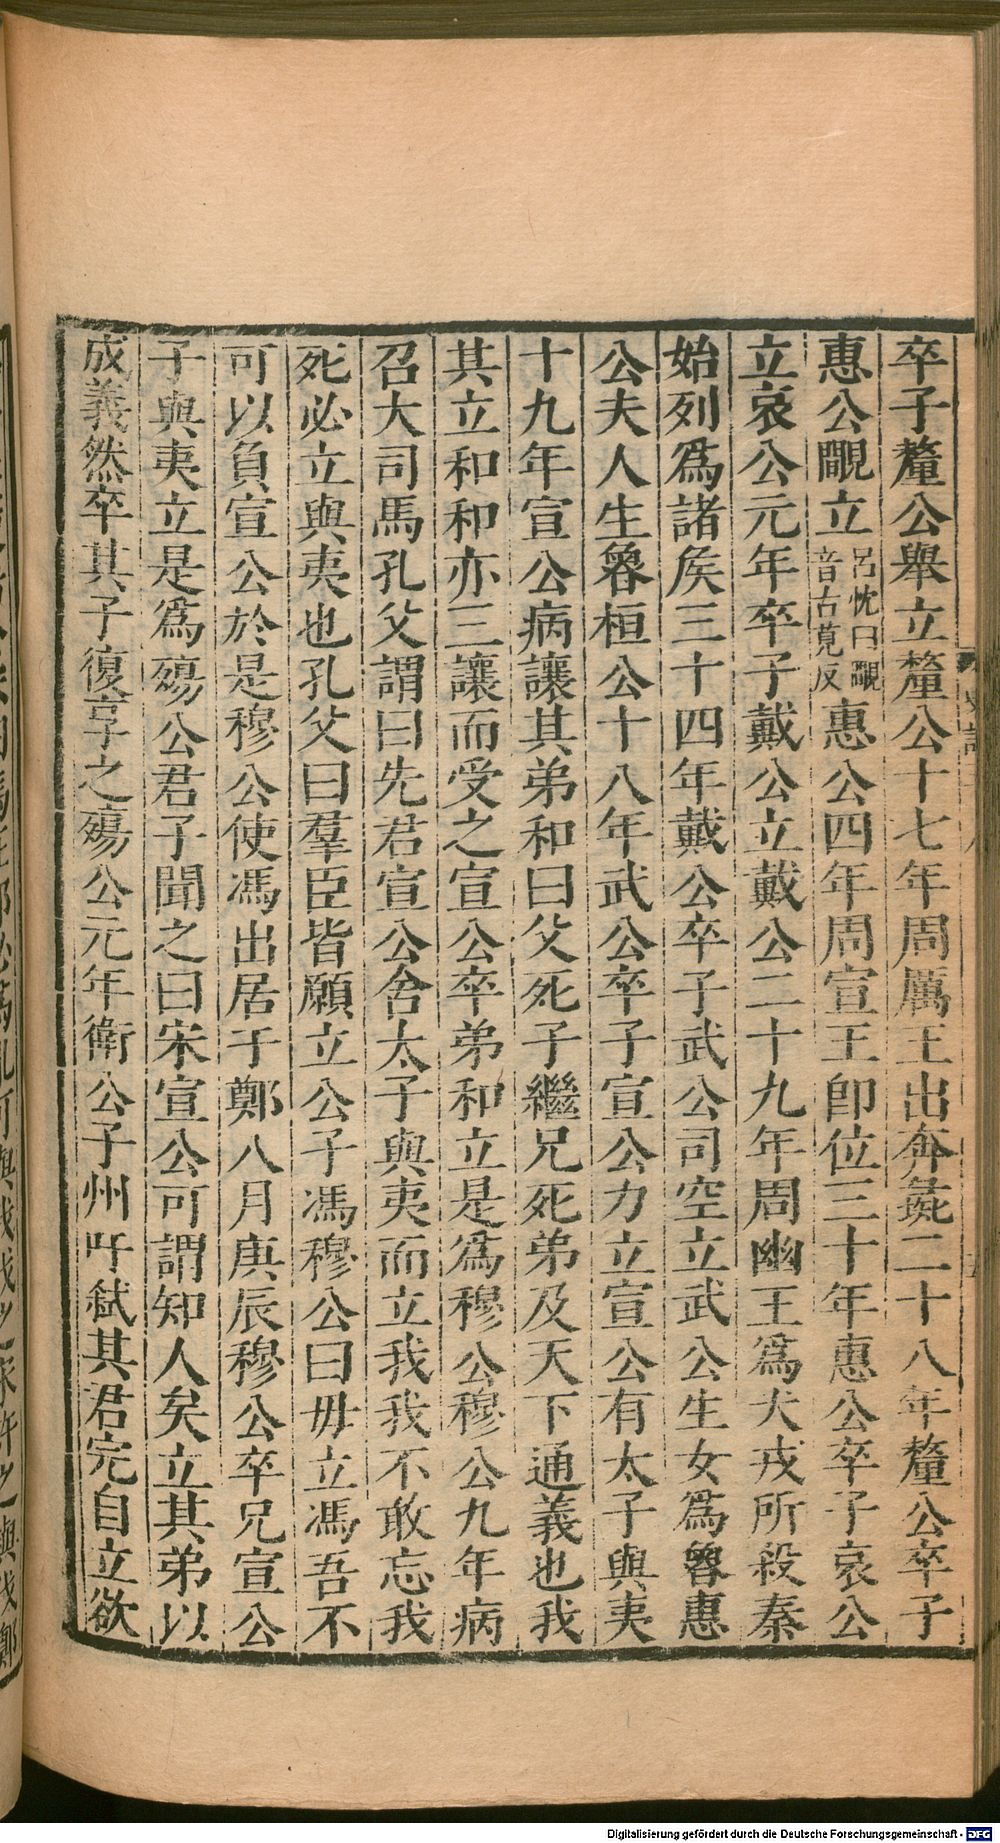 卒子釐公舉立釐公十七年周厲王出奔彘二十八年釐公卒子
惠公覵立
呂忱曰覵
音古莧反
惠公四年周宣王卽位三十年惠公卒子哀公
立哀公元年卒子戴公立戴公二十九年周幽王爲犬戎所殺秦
始列爲諸矦三十四年戴公卒子武公司空立武公生女爲魯惠
公夫人生魯桓公十八年武公卒子宣公力立宣公有太子與夷
十九年宣公病讓其弟和曰父死子繼兄死弟及天下通義也我
其立和和亦三讓而受之宣公卒弟和立是爲穆公穆公九年病
召大司馬孔父謂曰先君宣公舍太子與夷而立我我不敢忘我
死必立與夷也孔父曰羣臣皆願立公子馮穆公曰毋立馮吾不
可以負宣公於是穆公使馮出居于鄭八月庚辰穆公卒兄宣公
子與夷立是爲殤公君子聞之曰宋宣公可謂知人矣立其弟以
成義然卒其子復享之殤公元年衛公子州吁弑其君完自立欲
Digitalisierung gefördert durch die Deutsche Forschungsgemeinschaft - DFG